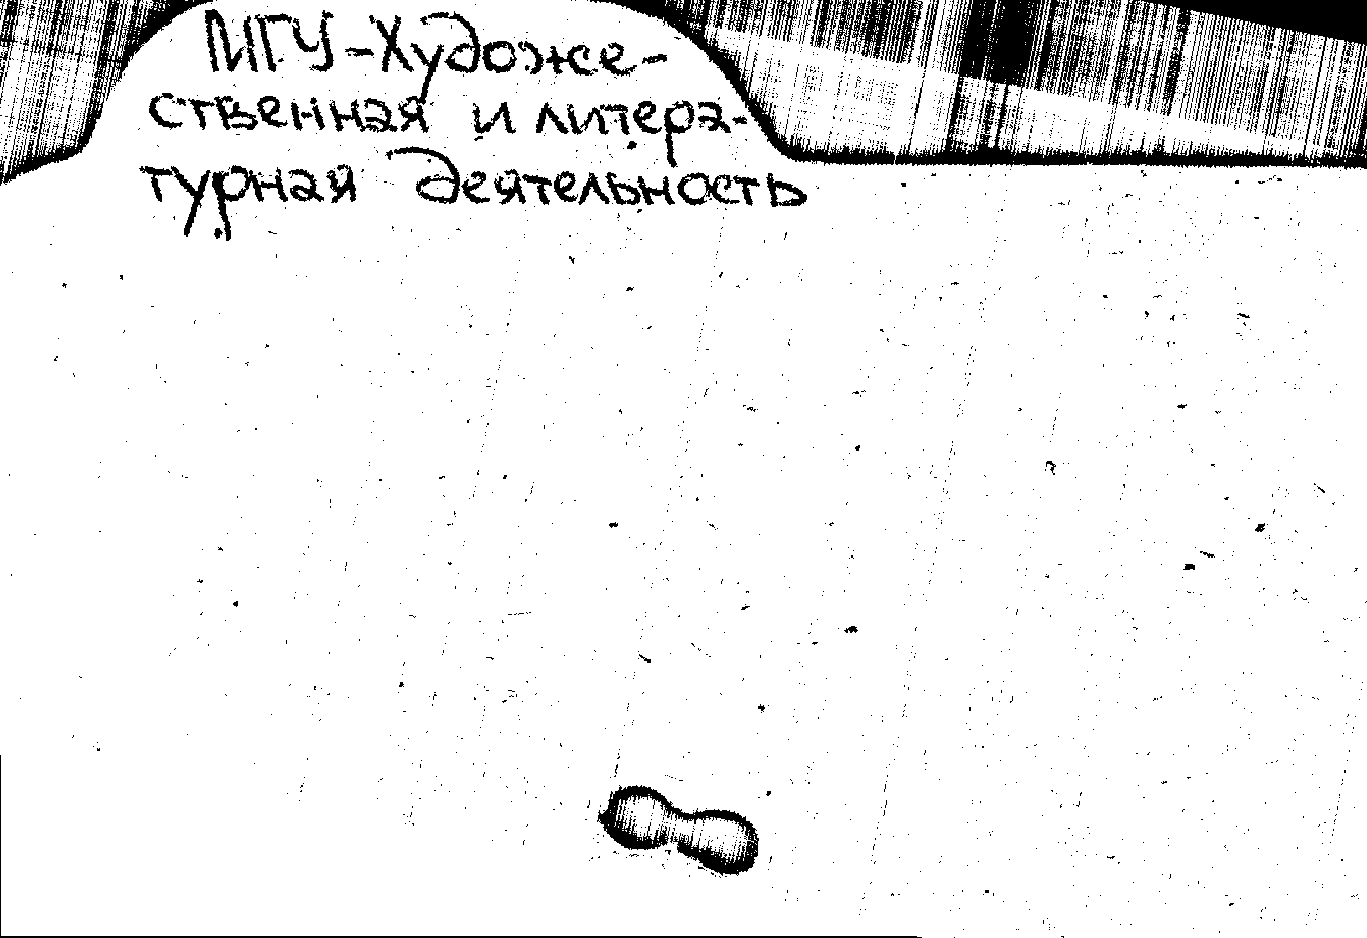 МГУ-Художе-
ственная и литера-
турная деятельность